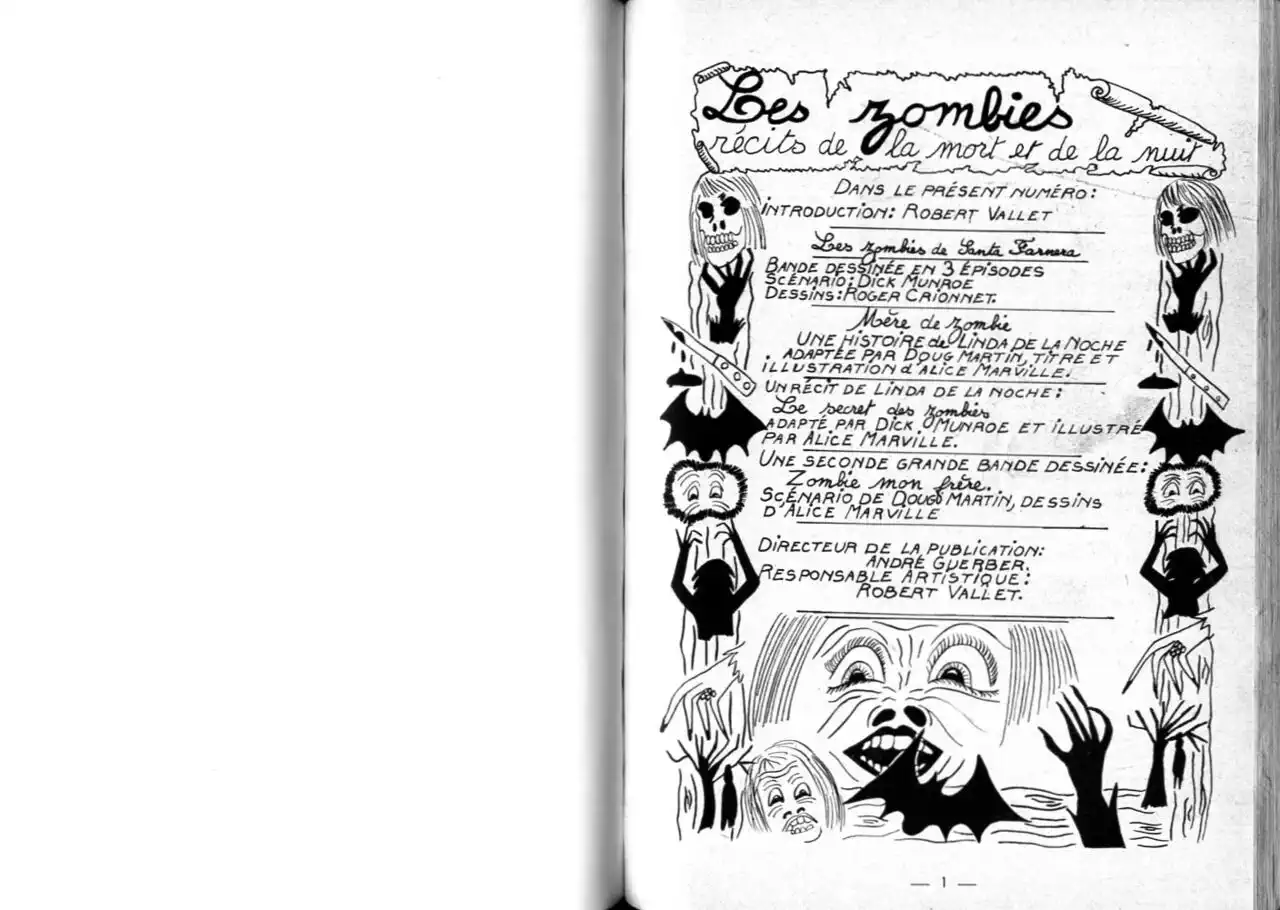 Les zombies
récits de la mort et de la nuit
DANS LE PRÉSENT NUMÉRO:
INTRODUCTION: ROBERT VALLET
Les zombies de Santa Farnera
BANDE DESSINÉE EN 3 ÉPISODES
SCÉNARIO: DICK MUNROE
DESSINS: ROGER CRIONNET.
Mère de zombie
UNE HISTOIRE de LINDA DE LA NOCHE
ADAPTÉE PAR DOUG MARTIN, TITRE ET
ILLUSTRATION d'ALICE MARVILLE.
UN RÉCIT DE LINDA DE LA NOCHE:
Le secret des zombies
ADAPTÉ PAR DICK MUNROE ET ILLUSTRÉ
PAR ALICE MARVILLE.
UNE SECONDE GRANDE BANDE DESSINÉE:
Zombie mon frère.
SCÉNARIO DE DOUG MARTIN, DESSINS
D'ALICE MARVILLE
DIRECTEUR DE LA PUBLICATION:
ANDRÉ GUERBER.
RESPONSABLE ARTISTIQUE:
ROBERT VALLET.
— 1 —